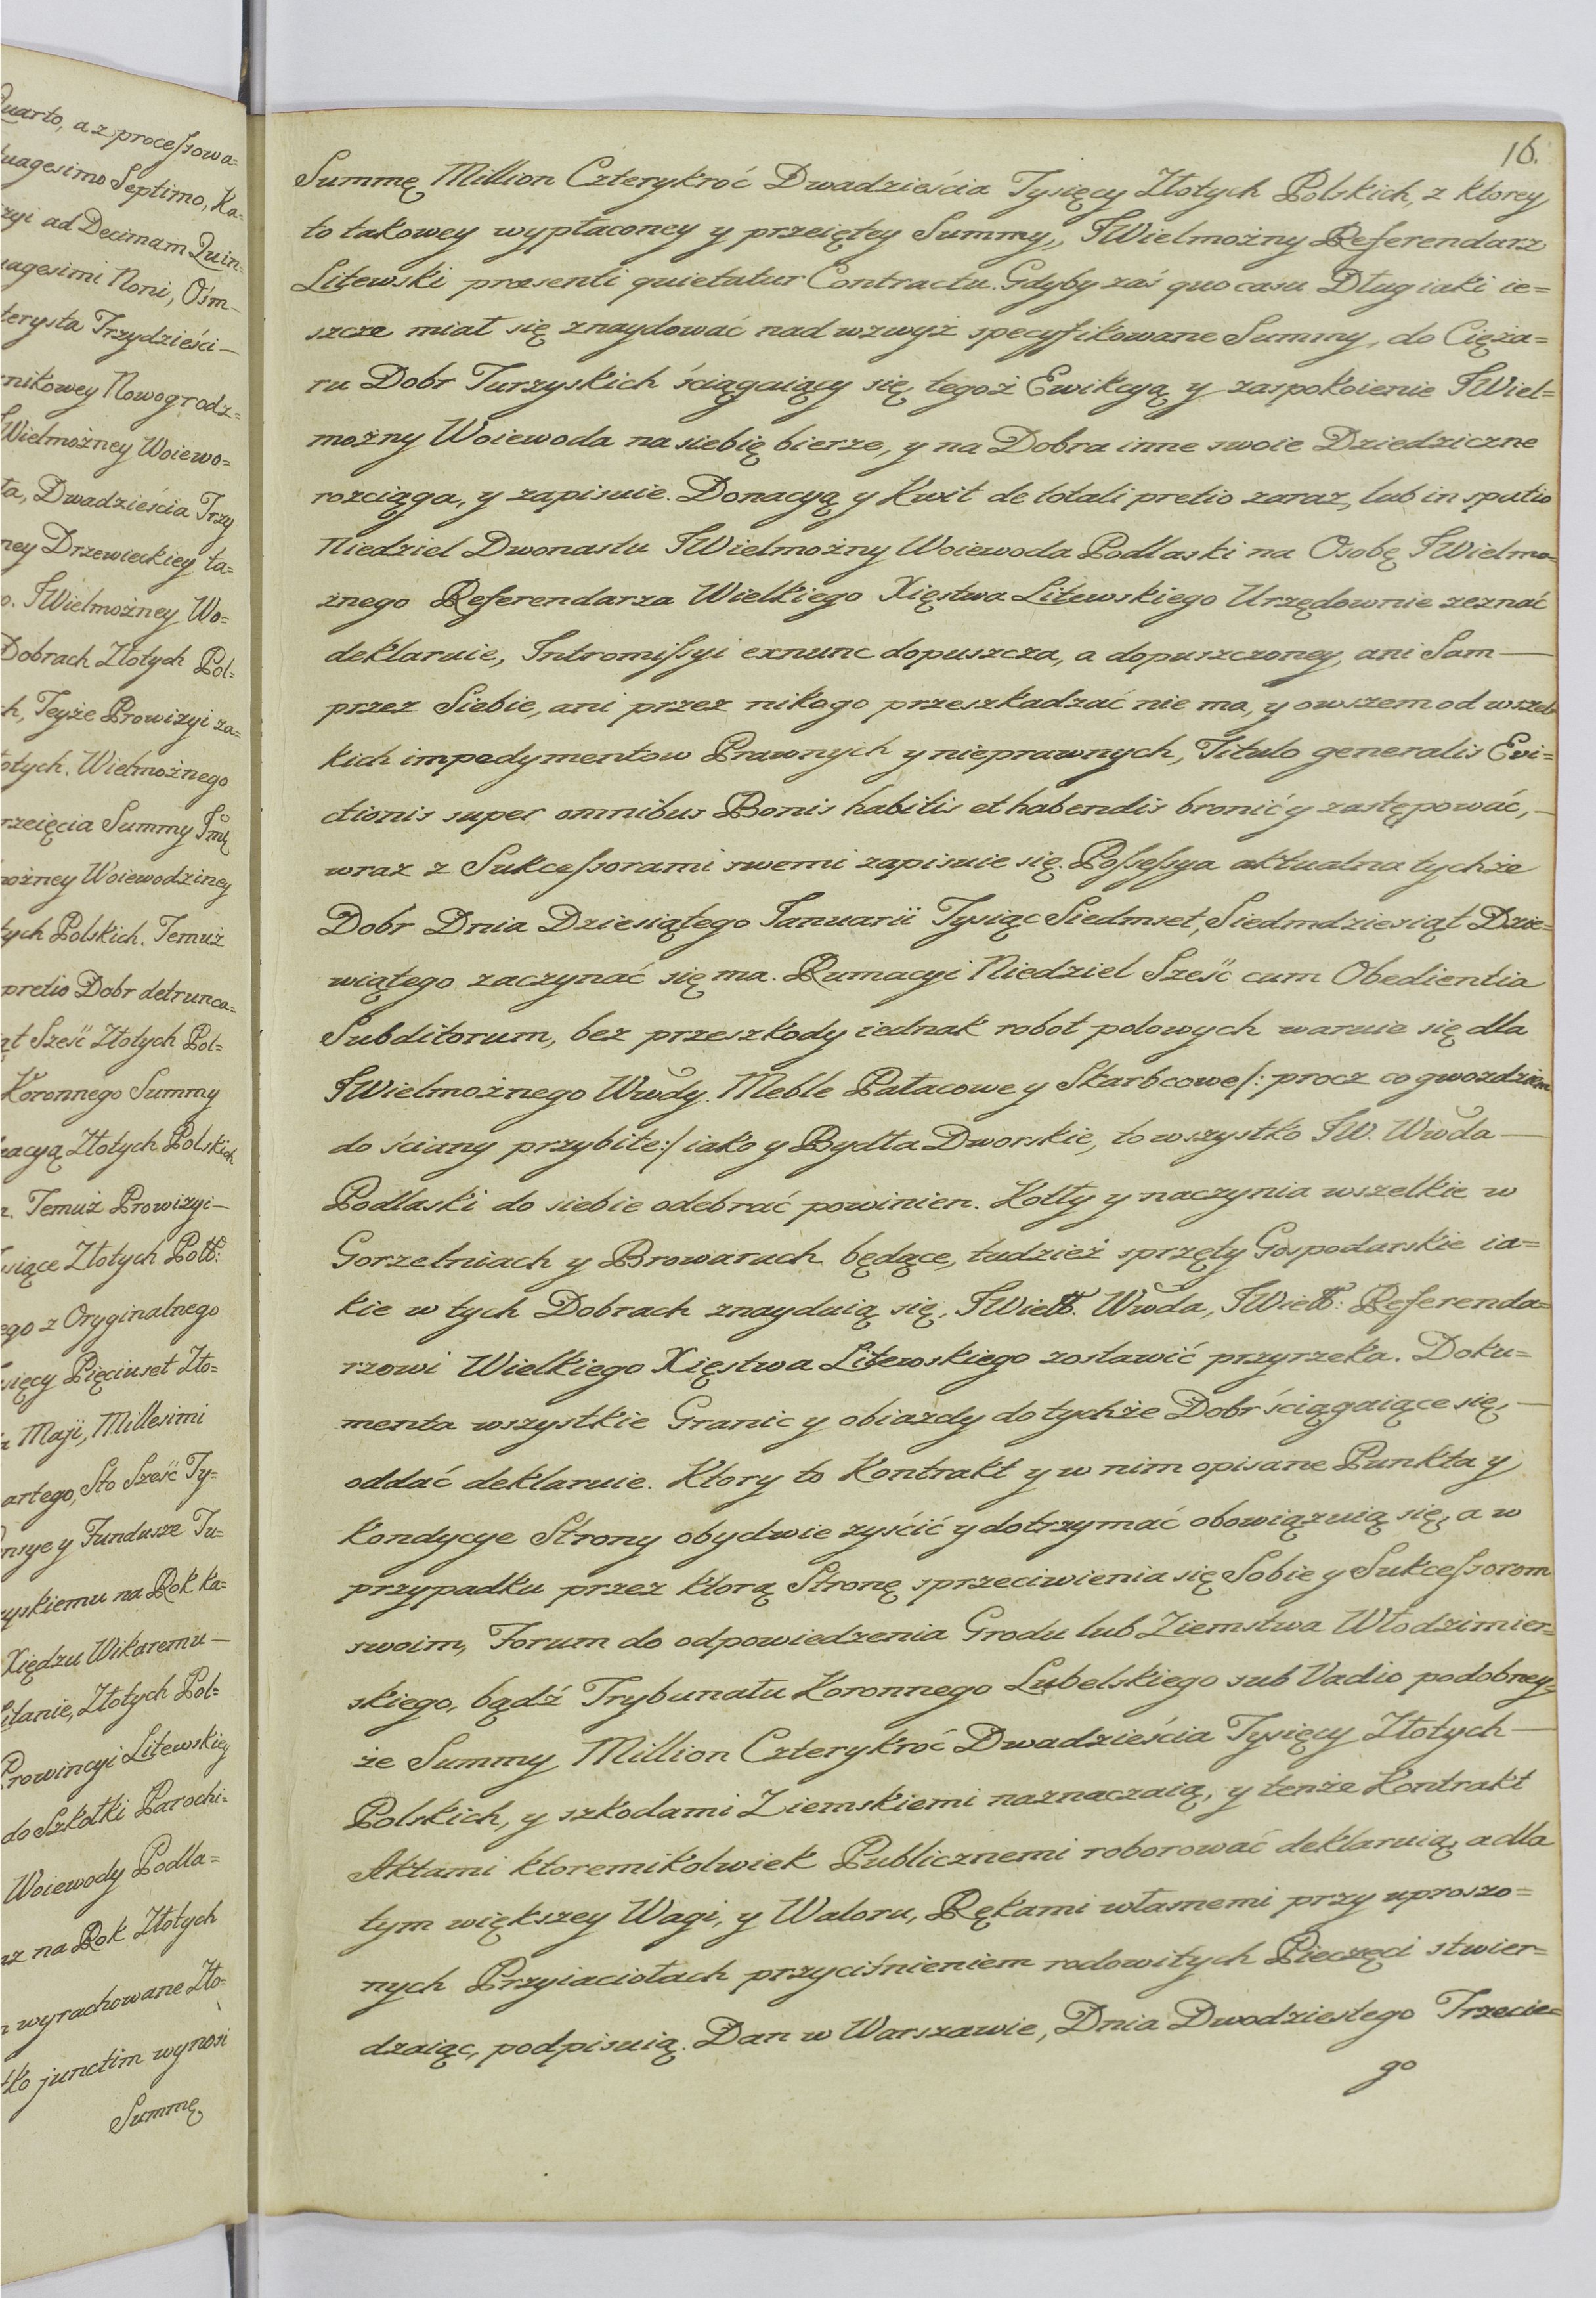 Quarto, a z processowa=
tuagesimo Septimo, Ka=
zyi ad Decimam Quin=
uagesimi Noni, Ośm—
terysta Trzydzieści—
znikowey Nowogrodz=
Wielmożney Woiewo=
ta, Dwadzieścia Trzy
ney Drzewieckiey ta=
o. JWielmożney Wo=
Dobrach Złotych Pol=
ch, Teyże Prowizyi za=
otych. Wielmożnego
rzeięcia Summy Jmć
możney Woiewodziney
tych Polskich. Temuż
pretio Dobr detrunca=
ąt Sześć Złotych Pol=
Koronnego Summy
nacyą Złotych Polskich
Temuż Prowizyi—
siące Złotych Polł:
ego z Oryginalnego
sięcy Pięciuset Zło=
a Maji, Millesimi
artego, Sto Sześć Ty=
ensye y Fundusze Tu=
zyskiemu na Rok ka=
Xiędzu Wikaremu—
itanie, Złotych Pol=
Prowincyi Litewskiey
do Szkołki Parochi=
Woiewody Podla=
az na Rok Złotych
wyrachowane Zło=
tko junctim wynosi
Summę
16.
Summę Million Czterykroć Dwadzieścia Tysięcy Złotych Polskich, z ktorey
to takowey wypłaconey y przeiętey Summy, JWielmożny Referendarz
Litewski præsenti quietatur Contractu. Gdyby zaś quo casu Dług iaki ie=
szcze miał się znaydować nad wzwyż specyfikowane Summy, do Cięża=
ru Dobr Turzyskich ściągaiący się, tegoż Ewikcyą y zaspokoienie JWiel=
możny Woiewoda na siebię bierze, y na Dobra inne swoie Dziedziczne
rozciąga, y zapisuie. Donacyą y Kwit de totali pretio zaraz, lub in sputio
Niedziel Dwonastu JWielmożny Woiewoda Podlaski na Osobę JWielmo=
żnego Referendarza Wielkiego Xięstwa Litewskiego Urzędownie zeznać
deklaruie, Intromissyi exnunc dopuszcza, a dopuszczoney, ani Sam—
przez Siebie, ani przez nikogo przeszkadzać nie ma, y owszem od wszel=
kich impedymentow Prawnych y nieprawnych, Titulo generalis Evi=
ctionis super omnibus Bonis habitis et habendis bronić y zastępować,—
wraz z Sukcessorami swemi zapisuie się. Possessya aktualna tychże
Dobr Dnia Dziesiątego Januarii Tysiąc Siedmset, Siedmdziesiąt Dzie=
wiątego zaczynać się ma. Rumacyi Niedziel Sześć cum Obedientia
Subditorum, bez przeszkody iednak robot polowych waruie się dla
JWielmożnego Wwdy. Meble Pałacowe y Skarbcowe /: procz co gwozdziem
do ściany przybite :/ iako y Bydła Dworskie, to wszystko JW. Wwda—
Podlaski do siebie odebrać powinien. Kotły y naczynia wszelkie w
Gorzelniach y Browaruch będące, tudzież sprzęty Gospodarskie ia=
kie w tych Dobrach znayduią się, JWielł. Wwda, JWielł: Referenda=
rzowi Wielkiego Xięstwa Litewskiego zostawić przyrzeka. Doku=
menta wszystkie Granic y obiazdy do tychże Dobr ściągaiące się,—
oddać deklaruie. Ktory to Kontrakt y w nim opisane Punkta y
Kondycye Strony obydwie zyścić y dotrzymać obowiązuią się, a w
przypadku przez ktorą Stronę sprzeciwienia się Sobie y Sukcessorom
swoim, Forum do odpowiedzenia Grodu lub Ziemstwa Włodzimier=
skiego, bądź Trybunału Koronnego Lubelskiego sub Vadio podobney=
że Summy Million Czterykroć Dwadzieścia Tysięcy Złotych—
Polskich, y szkodami Ziemskiemi naznaczaią, y tenże Kontrakt
Aktami ktoremikolwiek Publicznemi roborować deklaruią, a dla
tym większey Wagi, y Waloru, Rękami własnemi przy uproszo=
nych Przyiaciołach przyciśnieniem rodowitych Pieczęci stwier=
dzaiąc, podpisuią. Dan w Warszawie, Dnia Dwodziestego Trzecie=
go